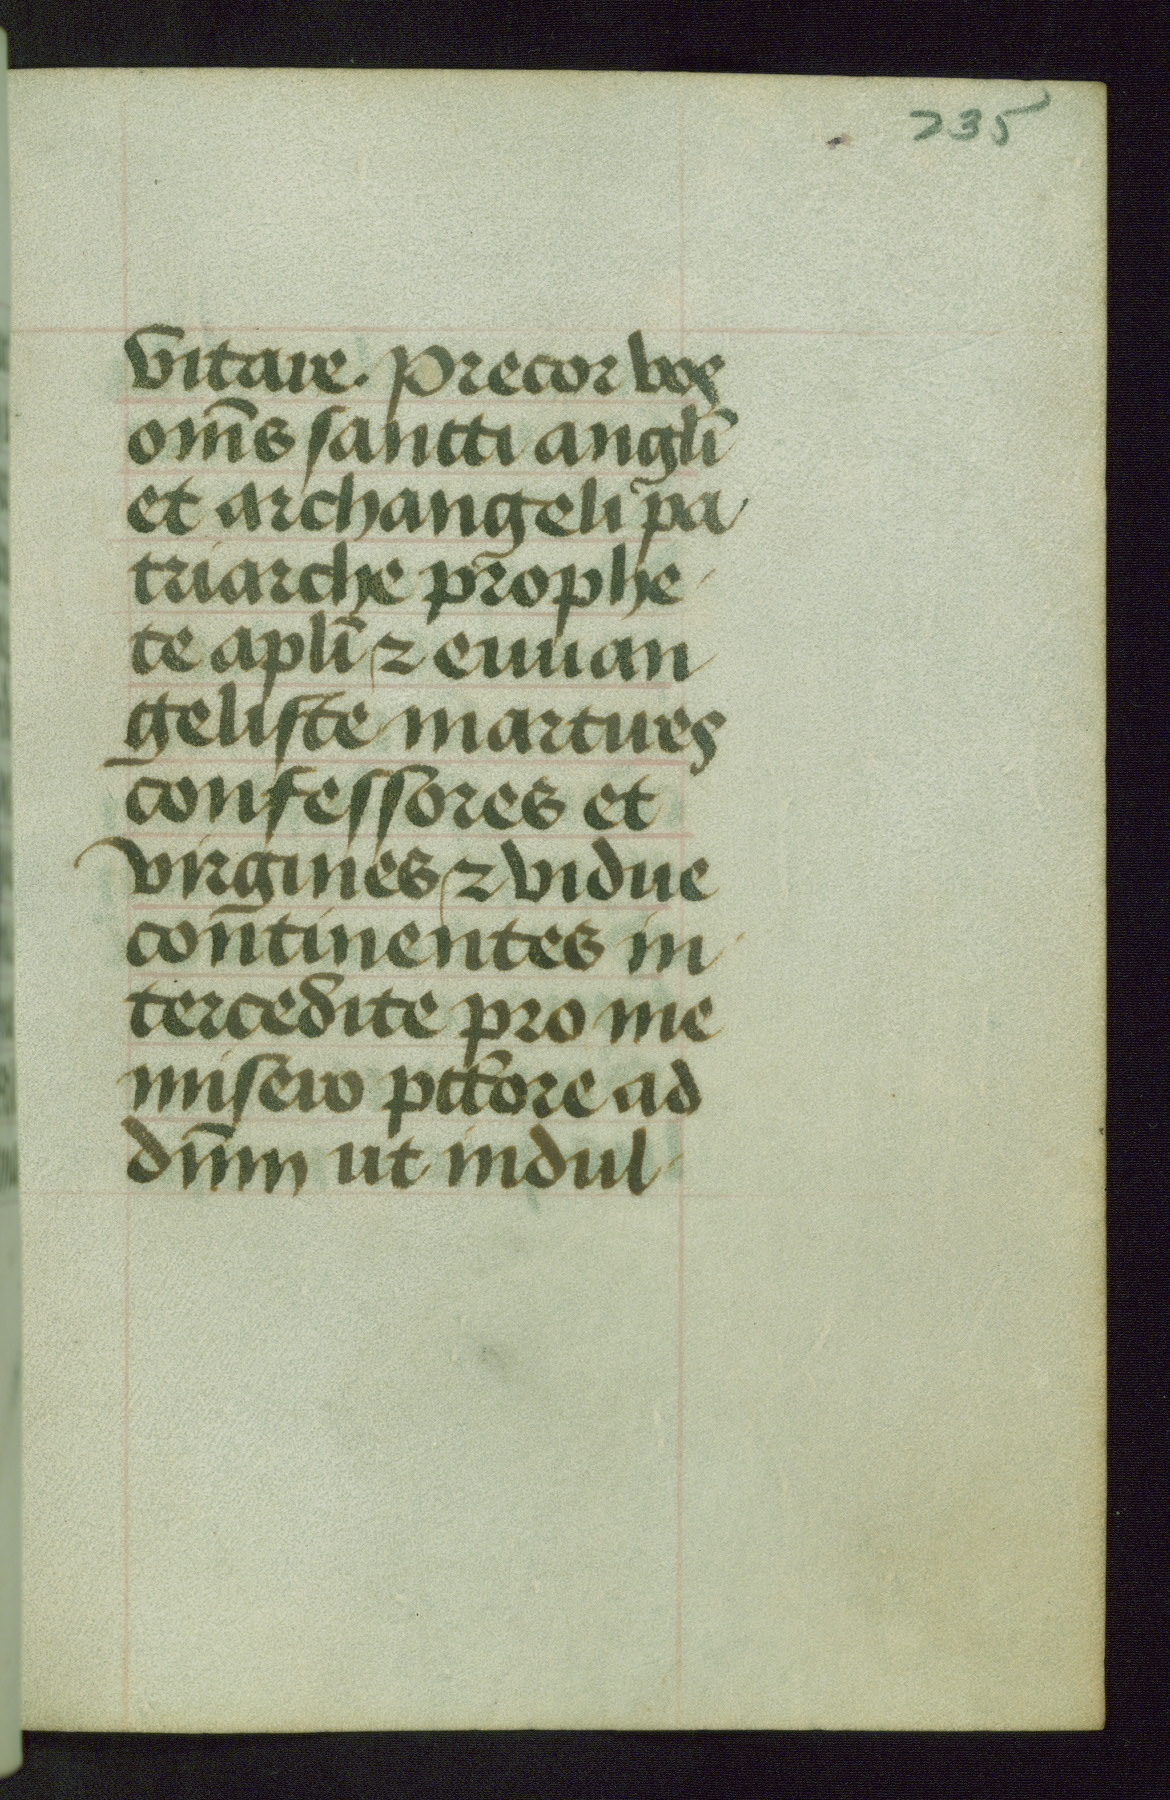 235
vītare. Precor vos
om̄s sancti angl̄i
et archangeli pa
triarche prophe
te apl̄i ⁊ euuan
geliste martires
confessores et
virgines ⁊ vidue
con̄tinentes in
tercedite pro me
misero pct̄ore ad
dn̄m ut indul